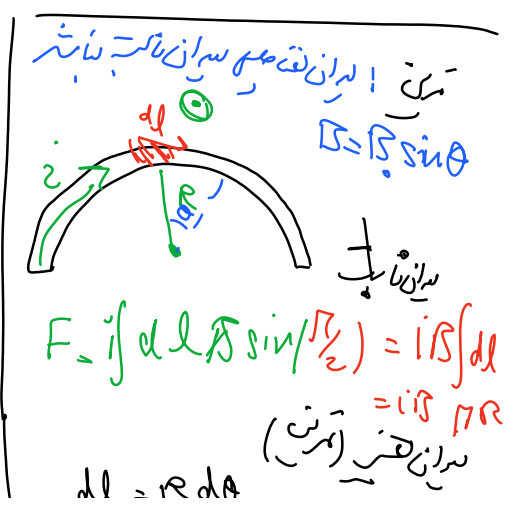 تمرین ! میدان ثابت نباشد
B = B₀ sinθ
dl
i
R
θ
میدان ثابت
F = i∫dl B sin(π/2) = iB∫dl
= iB πR
میدان متغیر (تمرین)
dl = R dθ